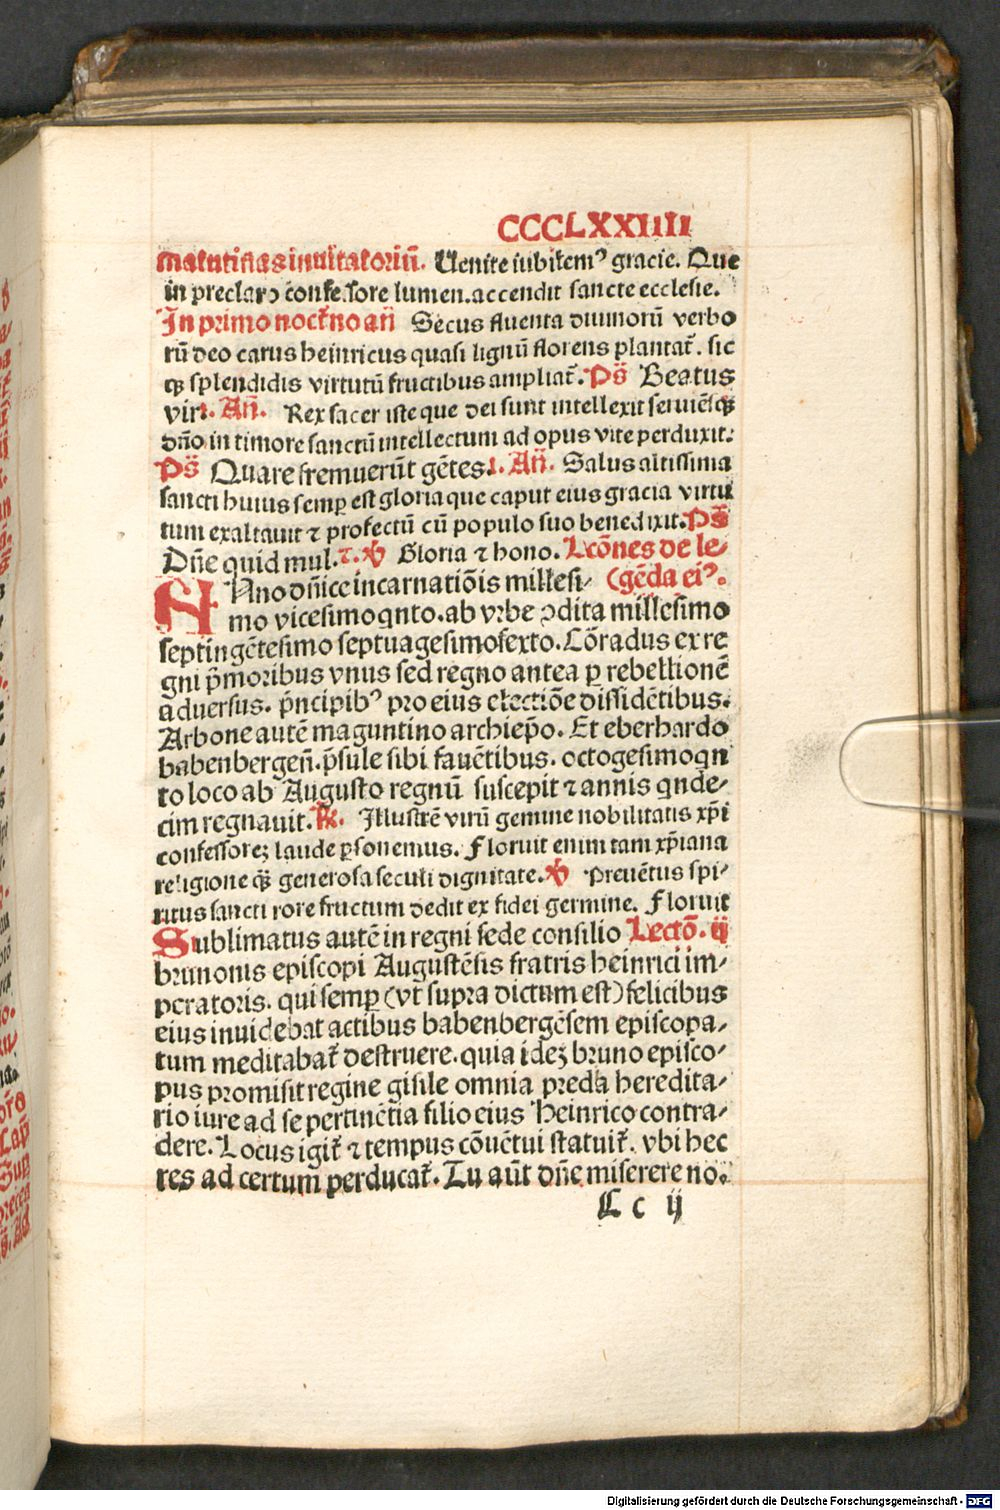 CCCLXXIIII
matutinas inuitatoriū. Uenite iubilem⁹ gracie. Que
in preclaro confessore lumen accendit sancte ecclesie.
In primo noct̄no an̄ Secus fluenta diuinorū verbo
rū deo carus heinricus quasi lignū florens plantat̄. sic
qꝫ splendidis virtutū fructibus ampliat̄. Ps̄ Beatus
vir. An̄. Rex sacer iste que dei sunt intellexit seruiēsqꝫ
dn̄o in timore sanctū intellectum ad opus vite perduxit.
Ps̄ Quare fremuerūt gētes. An̄. Salus altissima
sancti huius semꝑ est gloria que caput eius gracia virtu
tum exaltauit ⁊ profectū cū populo suo benedixit. Ps̄
Dn̄e quid mul. t. ℣ Gloria ⁊ hono. Lcōnes de le-
ANno dn̄ice incarnatiōis millesi- (gēda ei⁹.
mo vicesimoqnto. ab vrbe ꝯdita millesimo
septingētesimo septuagesimosexto. Cōradus ex re
gni p̄moribus vnus sed regno antea ꝑ rebellionē
aduersus. p̄ncipib⁹ pro eius electiōe dissidētibus.
Arbone autē maguntino archiep̄o. Et eberhardo
babenbergen̄. p̄sule sibi fauētibus. octogesimoqn
to loco ab Augusto regnū suscepit ⁊ annis qnde-
cim regnauit. ℟. Illustrē virū gemine nobilitatis xp̄i
confessoreꝫ laude ꝑsonemus. Floruit enim tam xp̄iana
religione qꝫ generosa seculi dignitate. ℣ Preuētus spi-
ritus sancti rore fructum dedit ex fidei germine. Floruit
Sublimatus autē in regni sede consilio Lectō. ij
brunonis episcopi Augustēsis fratris heinrici im-
peratoris. qui semꝑ (vt supra dictum est) felicibus
eius inuidebat actibus babenbergēsem episcopa-
tum meditabat̄ destruere. quia ideꝫ bruno episco-
pus promisit regine gisile omnia preda heredita-
rio iure ad se pertinētia filio eius heinrico contra-
dere. Locus igit̄ ⁊ tempus cōuētui statuit̄. vbi hec
res ad certum perducat̄. Tu aūt dn̄e miserere no.
C c ij
Digitalisierung gefördert durch die Deutsche Forschungsgemeinschaft - DFG